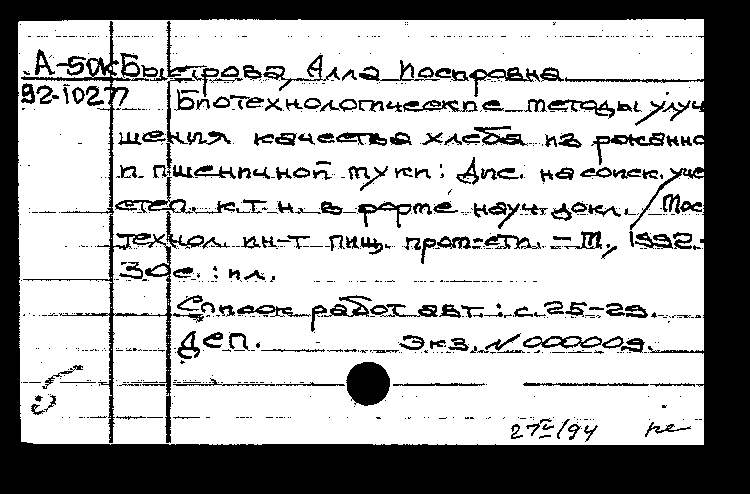 А-50к Быстрова, Алла Иосифовна
92-10277 Биотехнологические методы улуч
шения качества хлеба из ржано
и пшеничной муки : Дис. на соиск. уче
степ. к.т.н. в форме науч. докл. / Мос
технол. ин-т пищ. пром-сти. – М., 1992.-
30с. : ил.
Список работ авт. : с. 25-29.
Деп. Экз. № 000009.
27 IV/94